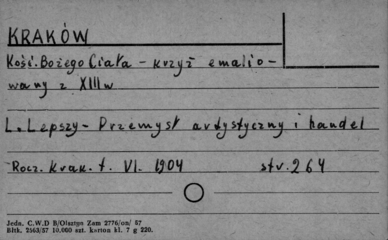 KRAKÓW
Kość. Bożego Ciała - krzyż emalio-
wany z XIII w
L. Lepszy - Przemysł artystyczny i handel
Rocz. Krak. t. VI. 1904 str. 264
Jedn. C.W.D B/Olsztyn Zam 2776/on/ 67
Bltk. 2563/57 10.000 szt. karton kl. 7 g 220.